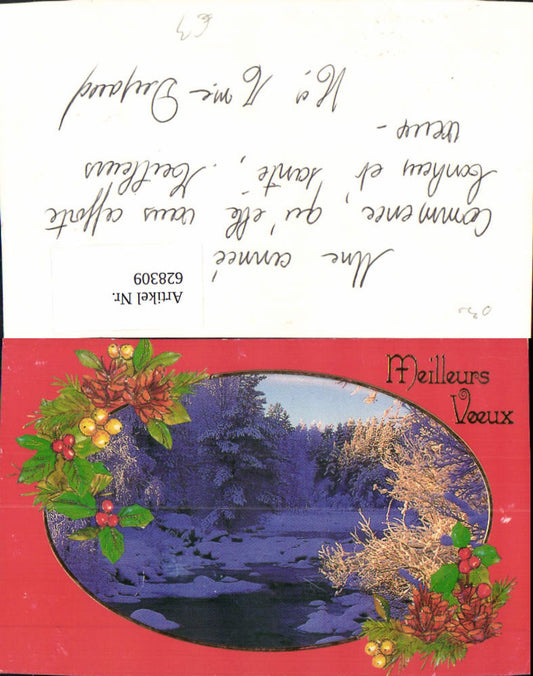 Une année
commence, qu'elle vous apporte
bonheur et santé, Meilleurs
vœux -
Mr Mme
Artikel Nr.
628309
Meilleurs
Vœux